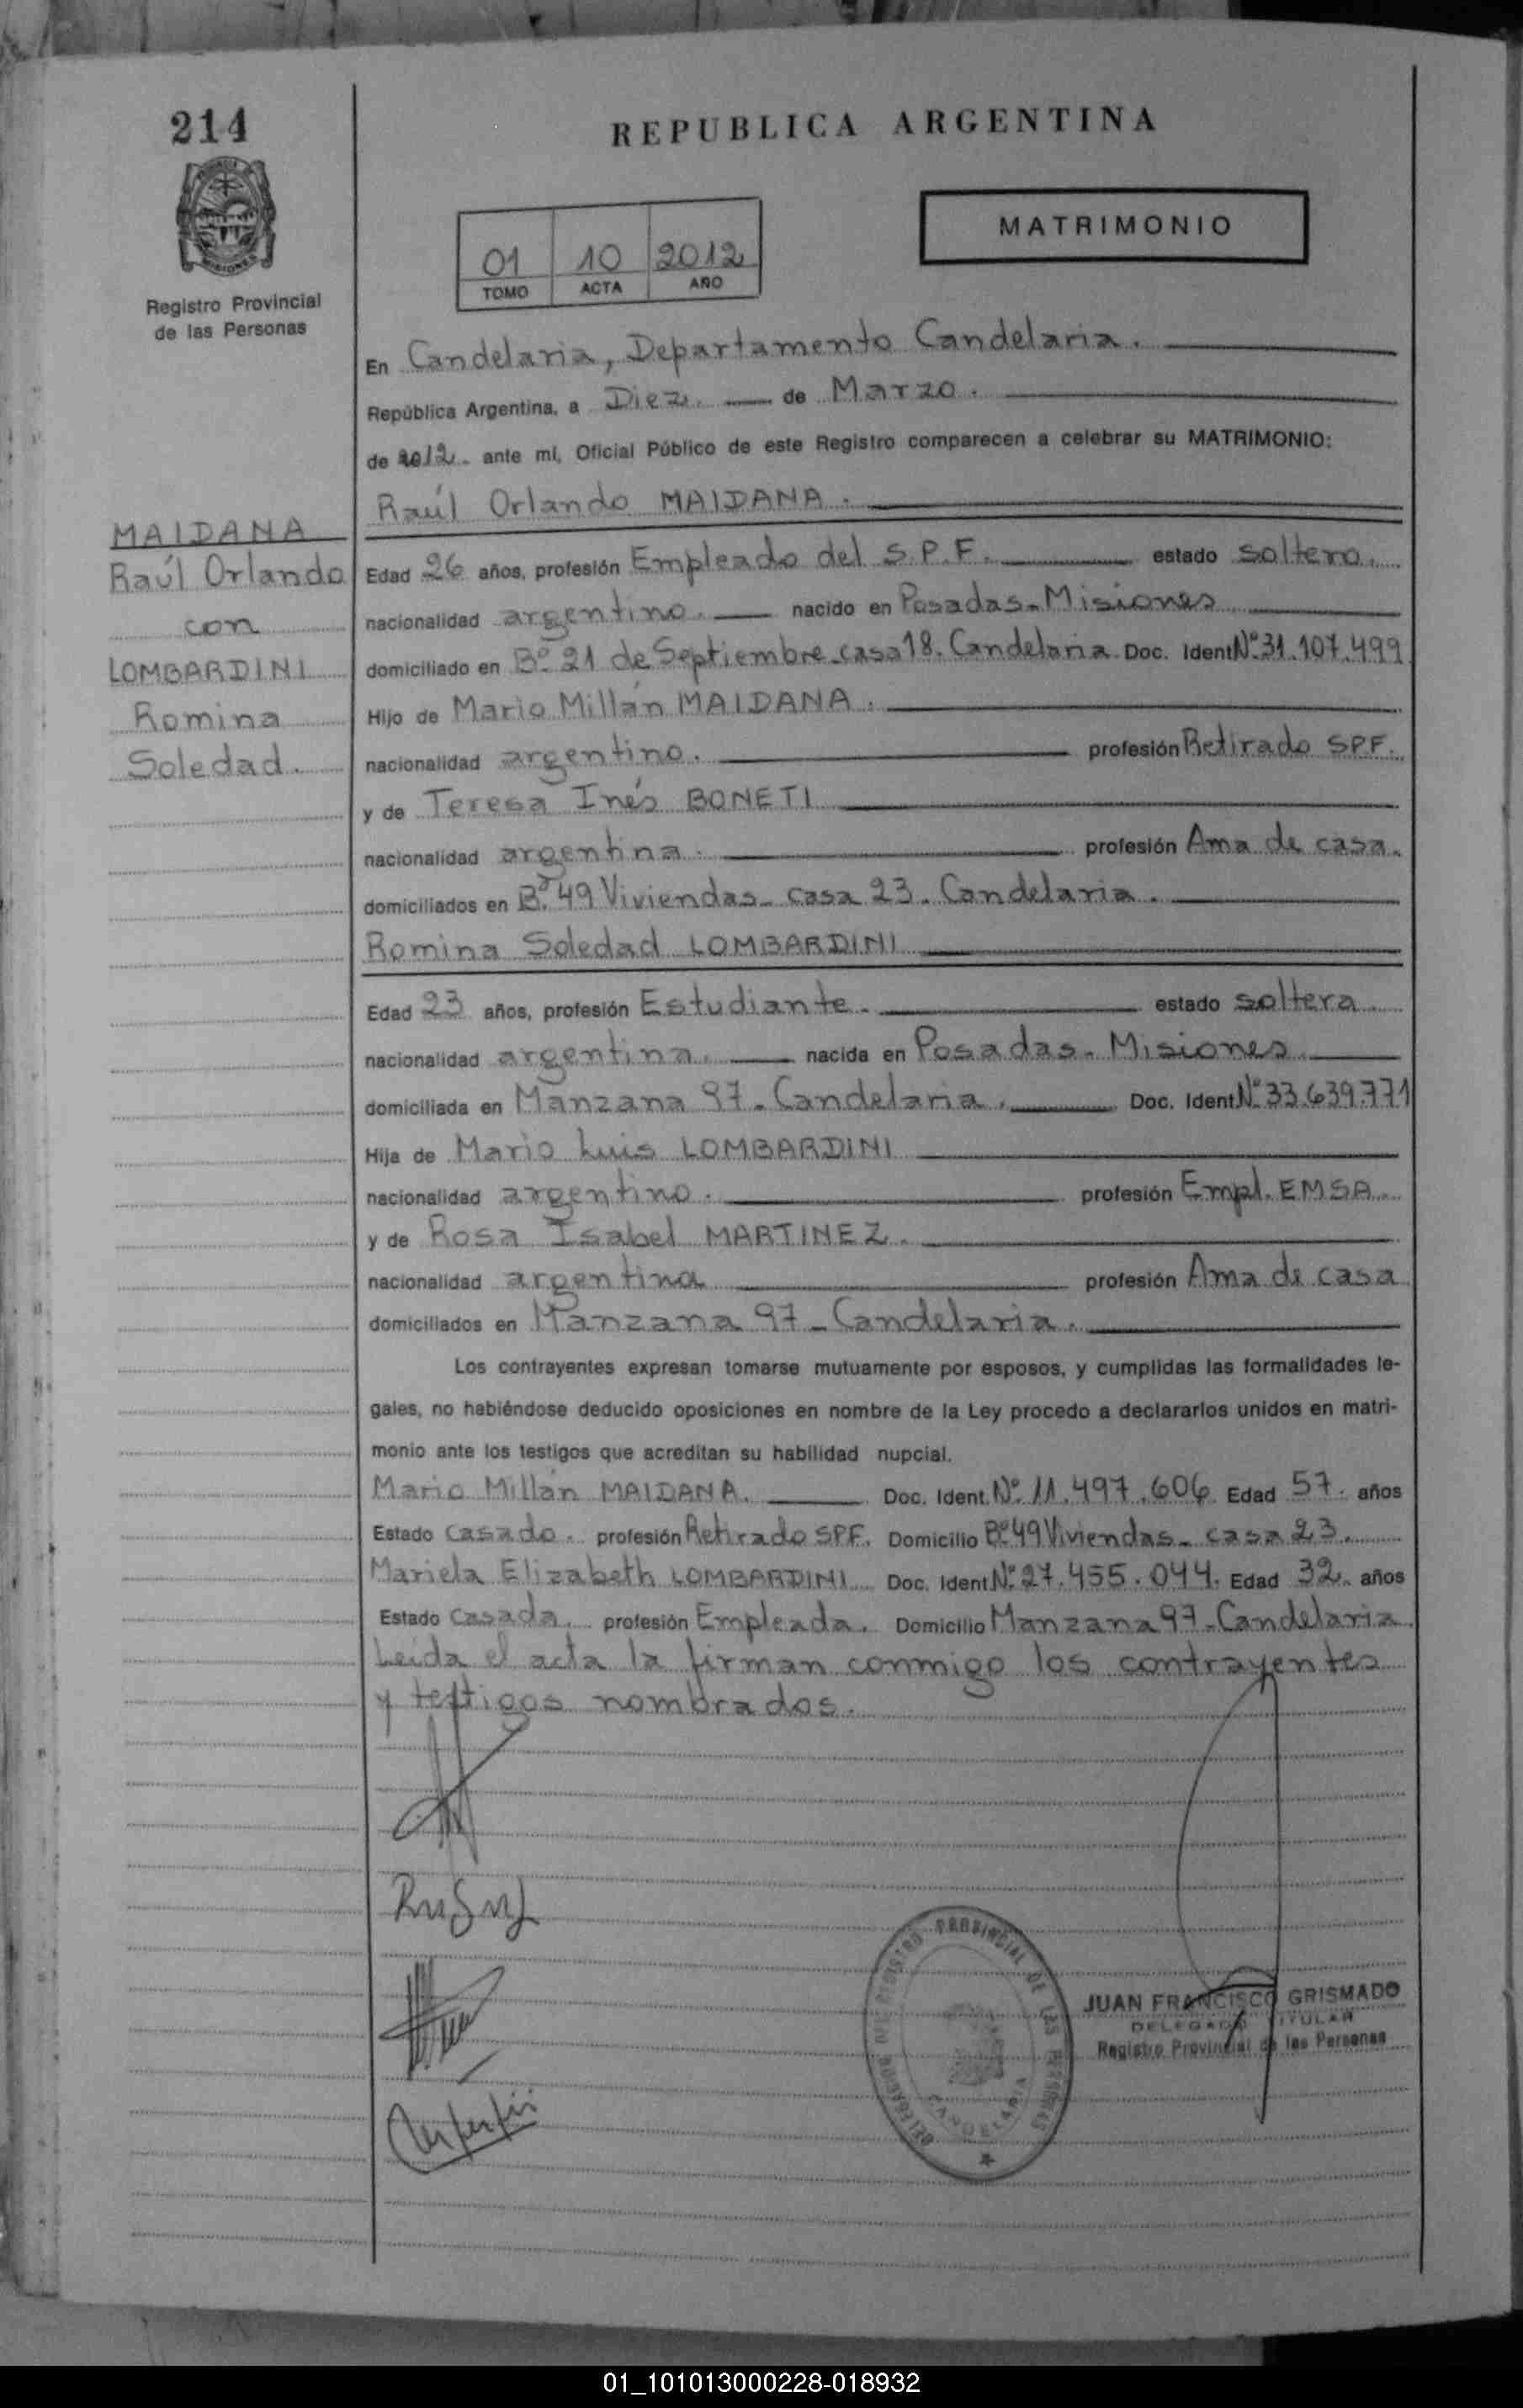 214
REPUBLICA ARGENTINA
MATRIMONIO
01 10 2012
TOMO ACTA AÑO
Registro Provincial
de las Personas
En Candelaria, Departamento Candelaria.
República Argentina, a Diez. de Marzo.
de 2012. ante mí, Oficial Público de este Registro comparecen a celebrar su MATRIMONIO:
Raúl Orlando MAIDANA.
MAIDANA
Raúl Orlando
con
LOMBARDINI
Romina
Soledad.
Edad 26 años, profesión Empleado del S.P.F. estado soltero.
nacionalidad argentino. nacido en Posadas-Misiones
domiciliado en Bº 21 de Septiembre-casa 18. Candelaria. Doc. Ident. Nº 31.107.499
Hijo de Mario Millán MAIDANA.
nacionalidad argentino. profesión Retirado SPF.
y de Teresa Inés BONETI
nacionalidad argentina. profesión Ama de casa.
domiciliados en Bº 49 Viviendas- casa 23. Candelaria.
Romina Soledad LOMBARDINI
Edad 23 años, profesión Estudiante. estado soltera.
nacionalidad argentina. nacida en Posadas- Misiones
domiciliada en Manzana 97- Candelaria. Doc. Ident. Nº 33.639.771
Hija de Mario Luis LOMBARDINI
nacionalidad argentino. profesión Empl. EMSA.
y de Rosa Isabel MARTINEZ.
nacionalidad argentina profesión Ama de casa
domiciliados en Manzana 97- Candelaria.
Los contrayentes expresan tomarse mutuamente por esposos, y cumplidas las formalidades le-
gales, no habiéndose deducido oposiciones en nombre de la Ley procedo a declararlos unidos en matri-
monio ante los testigos que acreditan su habilidad nupcial.
Mario Millán MAIDANA. Doc. Ident. Nº 11.497.606 Edad 57. años
Estado Casado. profesión Retirado SPF. Domicilio Bº 49 Viviendas- casa 23.
Mariela Elizabeth LOMBARDINI Doc. Ident. Nº 27.455.044. Edad 32. años
Estado Casada. profesión Empleada. Domicilio Manzana 97-Candelaria.
Leída el acta la firman conmigo los contrayentes
y testigos nombrados.
DELEGACION DEL REGISTRO PROVINCIAL DE LAS PERSONAS
CANDELARIA
JUAN FRANCISCO GRISMADO
DELEGADO TITULAR
Registro Provincial de las Personas
01_101013000228-018932